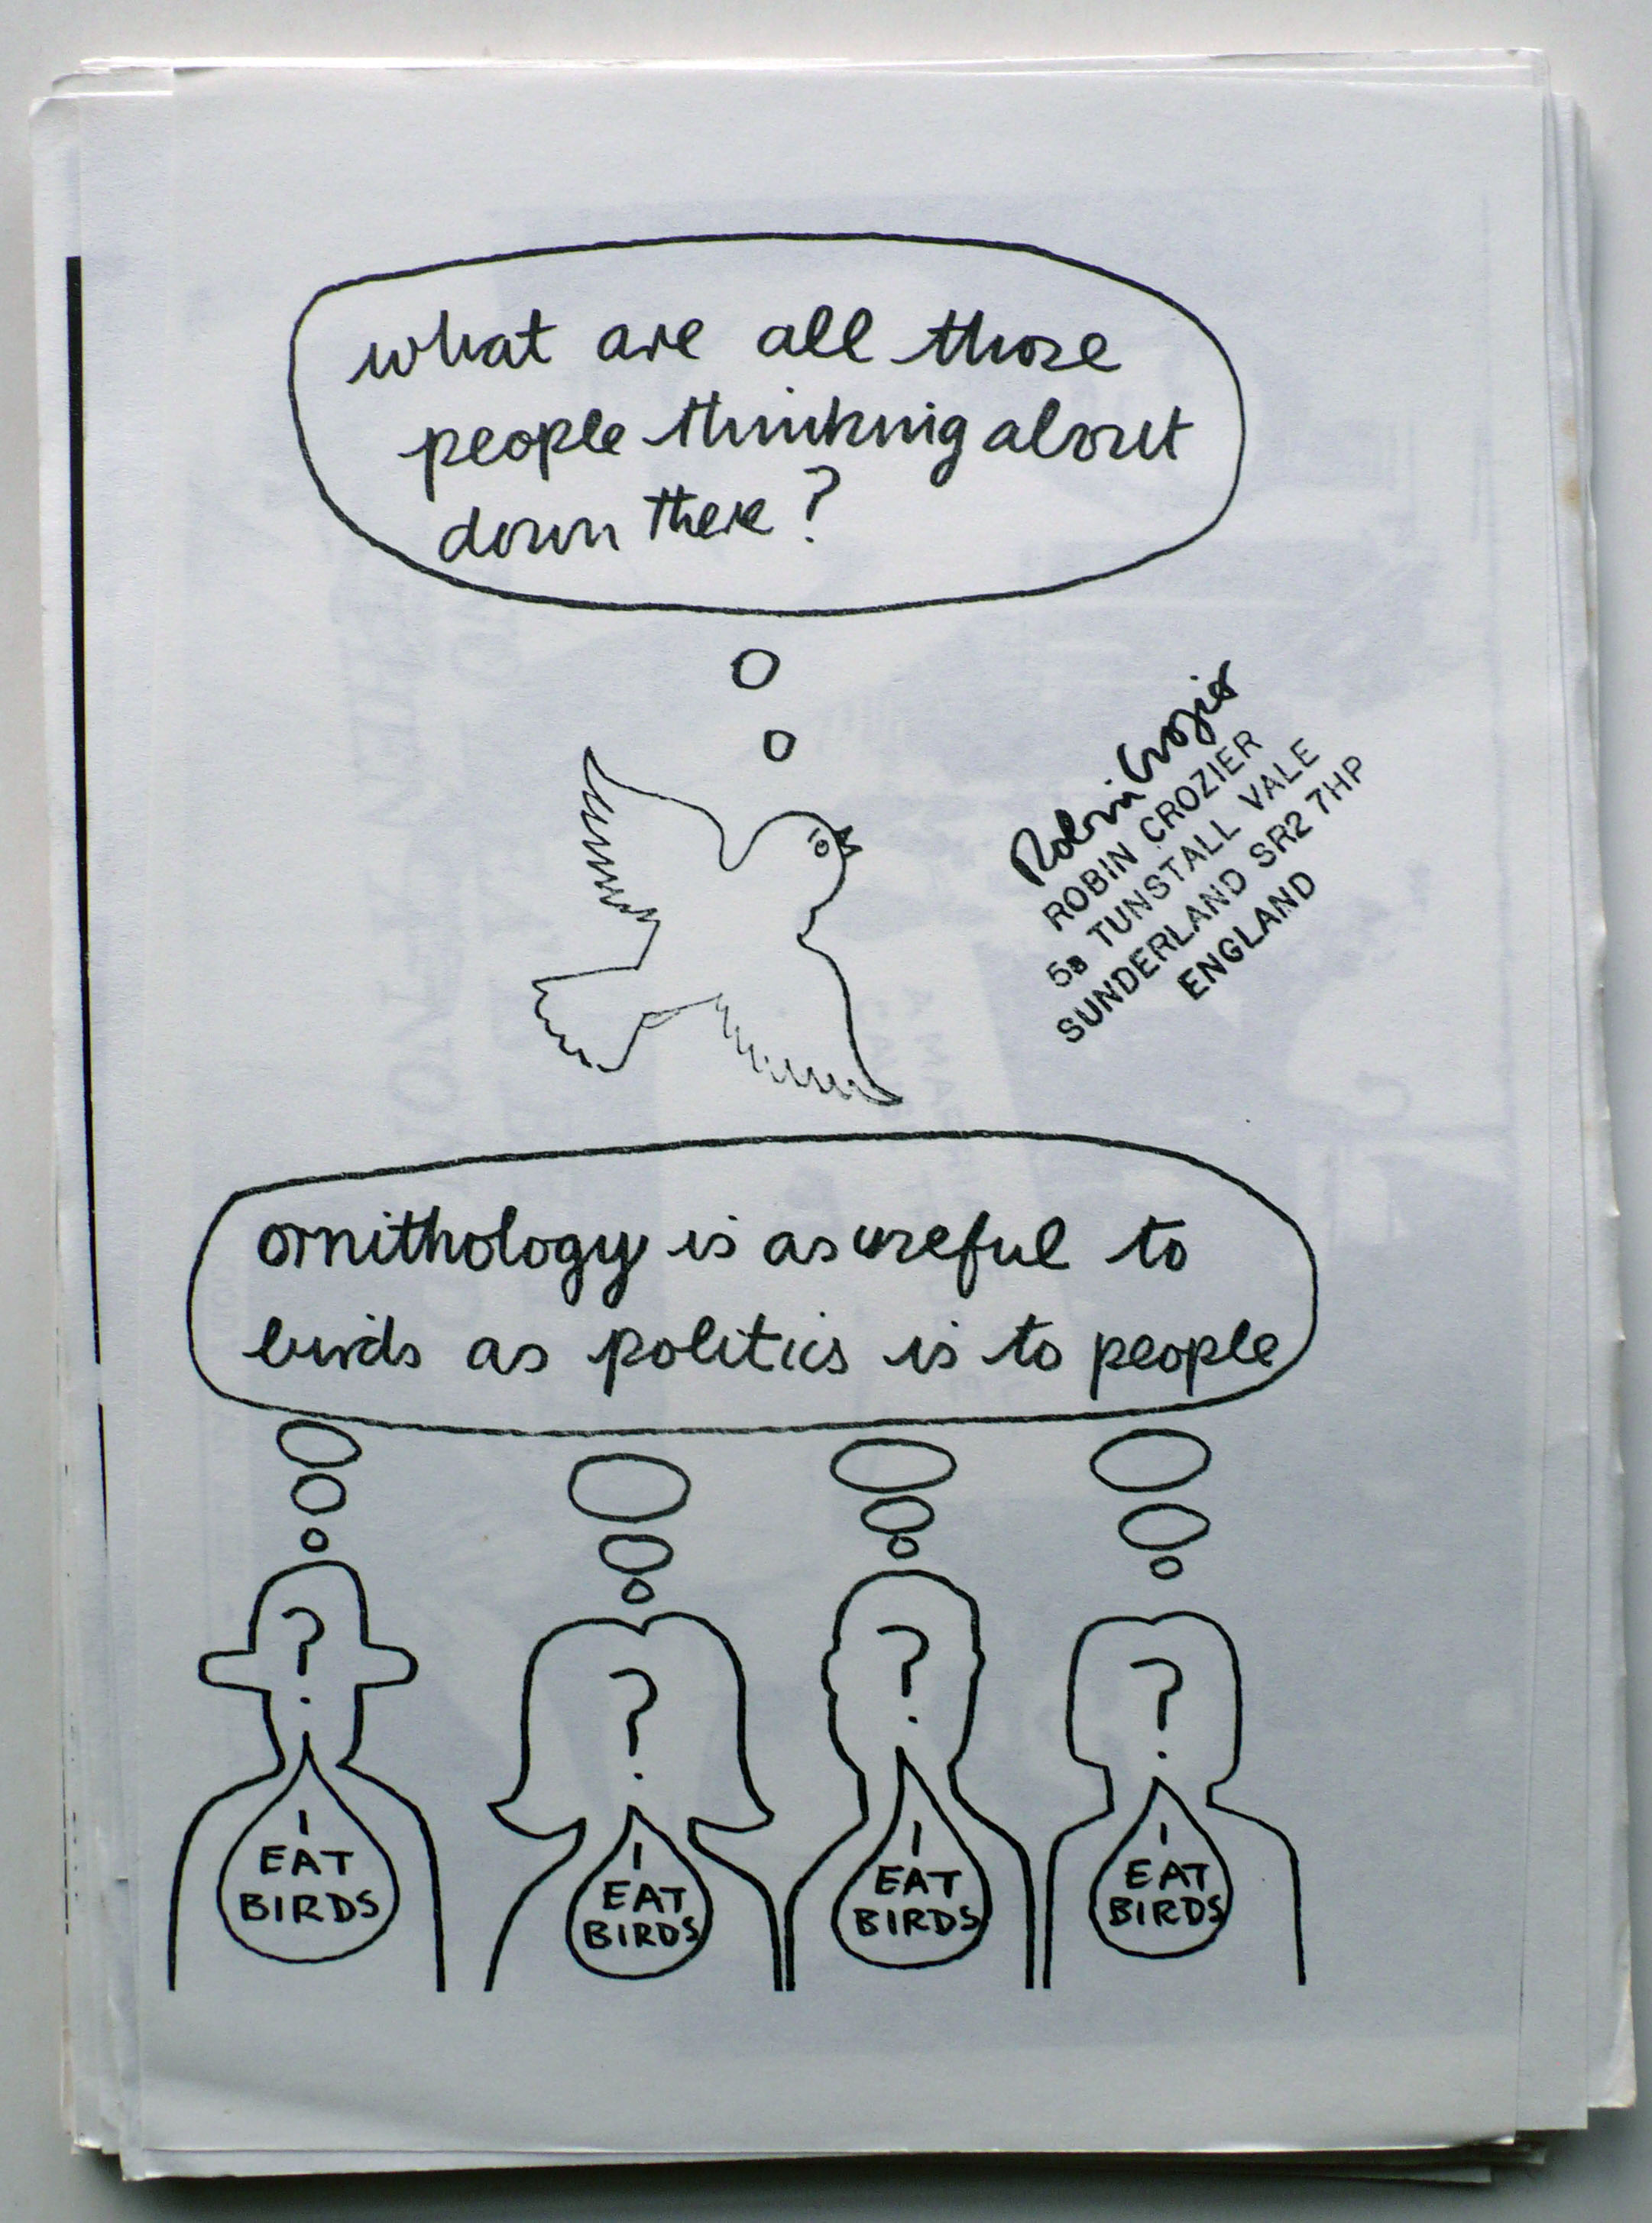 what are all those
people thinking about
down there?
Robin Crozier
ROBIN CROZIER
5B TUNSTALL VALE
SUNDERLAND SR2 7HP
ENGLAND
ornithology is as useful to
birds as politics is to people
?
?
?
?
I
EAT
BIRDS
I
EAT
BIRDS
I
EAT
BIRDS
I
EAT
BIRDS